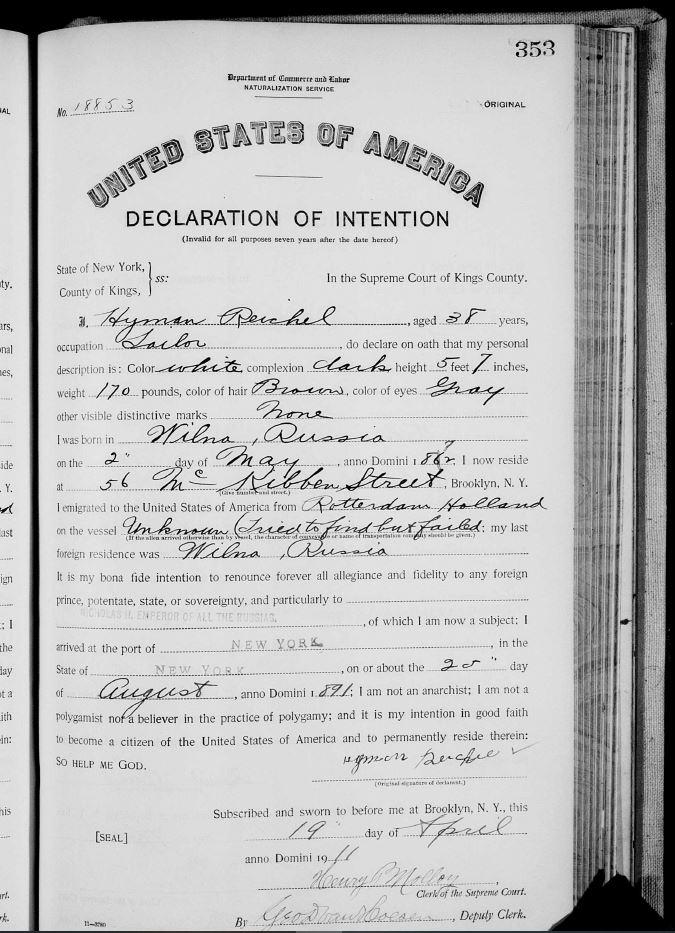 353
Department of Commerce and Labor
NATURALIZATION SERVICE
No. 18853
ORIGINAL
UNITED STATES OF AMERICA
DECLARATION OF INTENTION
(Invalid for all purposes seven years after the date hereof)
State of New York,
County of Kings, } ss:
In the Supreme Court of Kings County.
I, Hyman Reichel, aged 38 years,
occupation Tailor, do declare on oath that my personal
description is: Color white, complexion dark, height 5 feet 7 inches,
weight 170 pounds, color of hair Brown, color of eyes Gray
other visible distinctive marks None
I was born in Wilna, Russia
on the 2" day of May, anno Domini 1 ; I now reside
at 56 McKibben Street, Brooklyn, N. Y.
(Give number and street.)
I emigrated to the United States of America from Rotterdam Holland
on the vessel Unknown (Tried to find but failed; my last
(If the alien arrived otherwise than by vessel, the character of conveyance or name of transportation company should be given.)
foreign residence was Wilna, Russia
It is my bona fide intention to renounce forever all allegiance and fidelity to any foreign
prince, potentate, state, or sovereignty, and particularly to
NICHOLAS II, EMPEROR OF ALL THE RUSSIAS, of which I am now a subject; I
arrived at the port of NEW YORK, in the
State of NEW YORK, on or about the 25" day
of August, anno Domini 1891; I am not an anarchist; I am not a
polygamist nor a believer in the practice of polygamy; and it is my intention in good faith
to become a citizen of the United States of America and to permanently reside therein:
SO HELP ME GOD.
(Original signature of declarant.)
Subscribed and sworn to before me at Brooklyn, N. Y., this
[SEAL]
19" day of April
anno Domini 1911
Henry P Molloy,
Clerk of the Supreme Court.
By , Deputy Clerk.